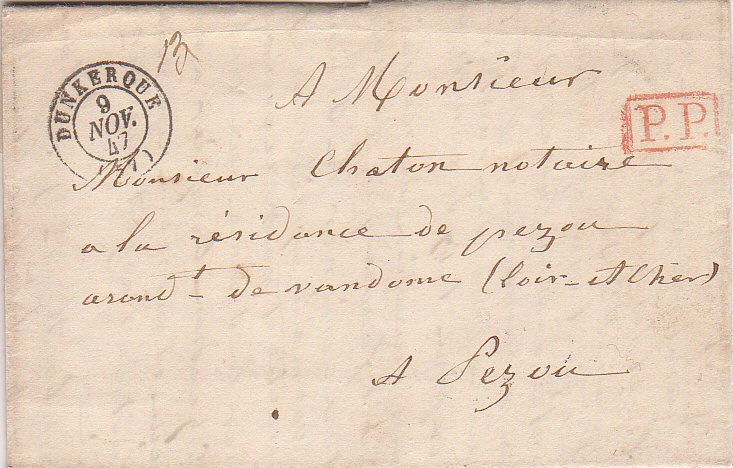 DUNKERQUE
9
NOV.
47
A Monsieur
P.P.
Monsieur Chaton notaire
a la résidance de pezou
arond.t de vandome (loir-et Cher)
A Pezou